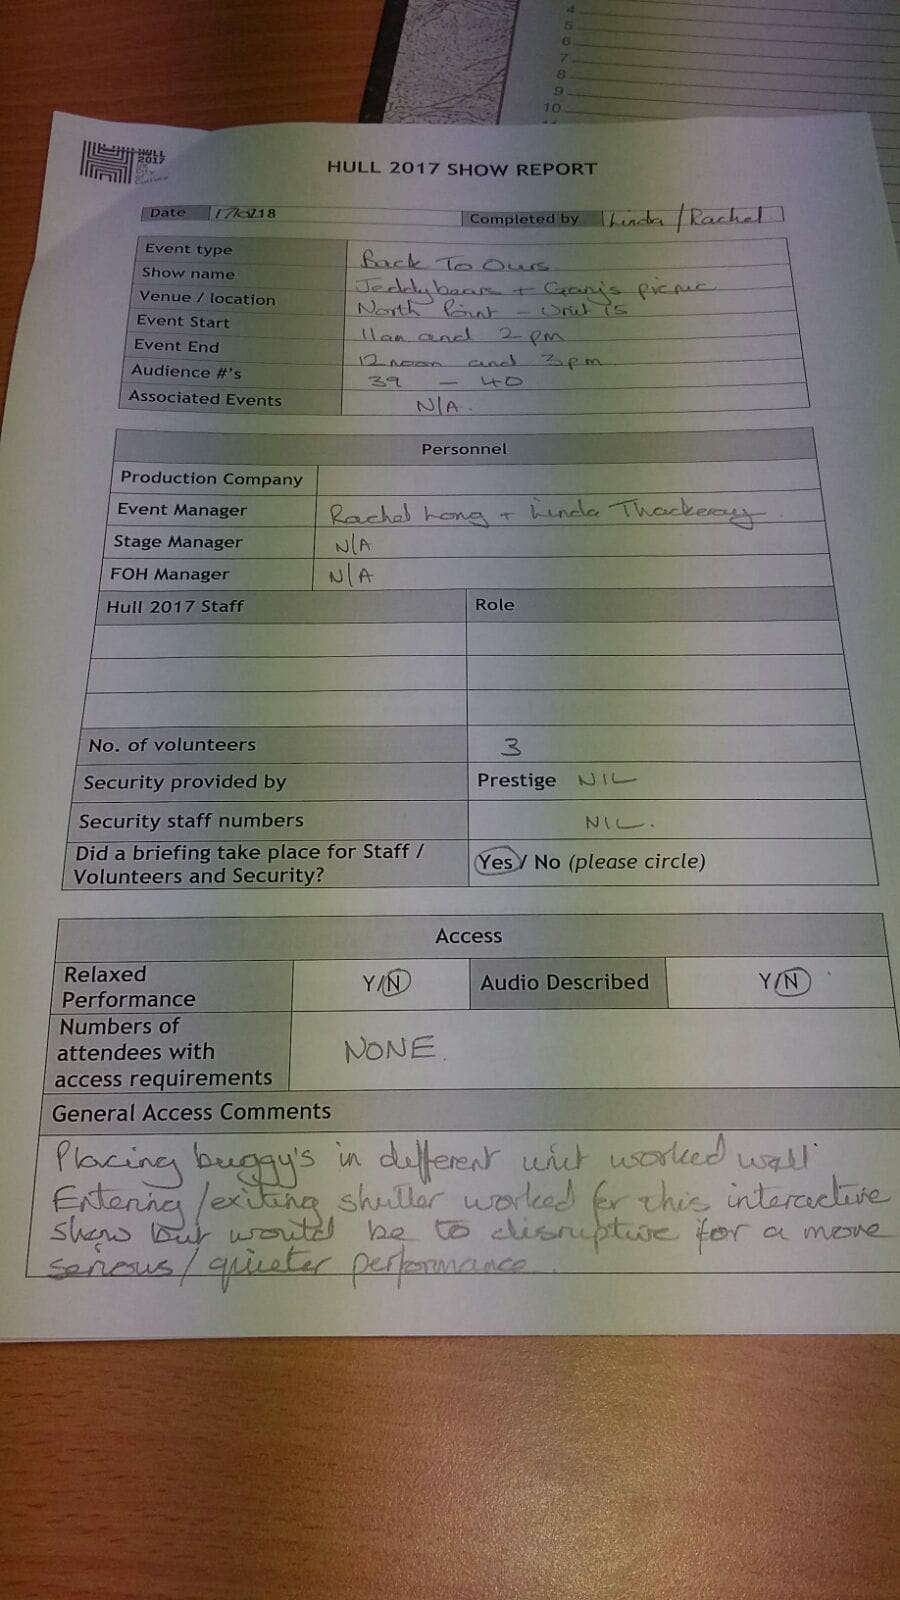 4
5
6
7
8
9
10
HULL
2017
UK
City
of
Culture
HULL 2017 SHOW REPORT
Date 18 Completed by Linda / Rachel
Event type Back To Ours
Show name Teddybears + Gary's picnic
Venue / location North Point - Unit 15
Event Start 11am and 2pm
Event End 12noon and 3pm
Audience #'s 39 - 40
Associated Events N/A.
Personnel
Production Company
Event Manager Rachel Long + Linda Thackeray
Stage Manager N/A
FOH Manager N/A
Hull 2017 Staff Role
No. of volunteers 3
Security provided by Prestige NIL
Security staff numbers NIL.
Did a briefing take place for Staff / Yes / No (please circle)
Volunteers and Security?
Access
Relaxed Y/N Audio Described Y/N
Performance
Numbers of
attendees with NONE.
access requirements
General Access Comments
Placing buggy's in different unit worked well
Entering/exiting shutter worked for this interactive
show but would be to disruptive for a more
serious/quieter performance.